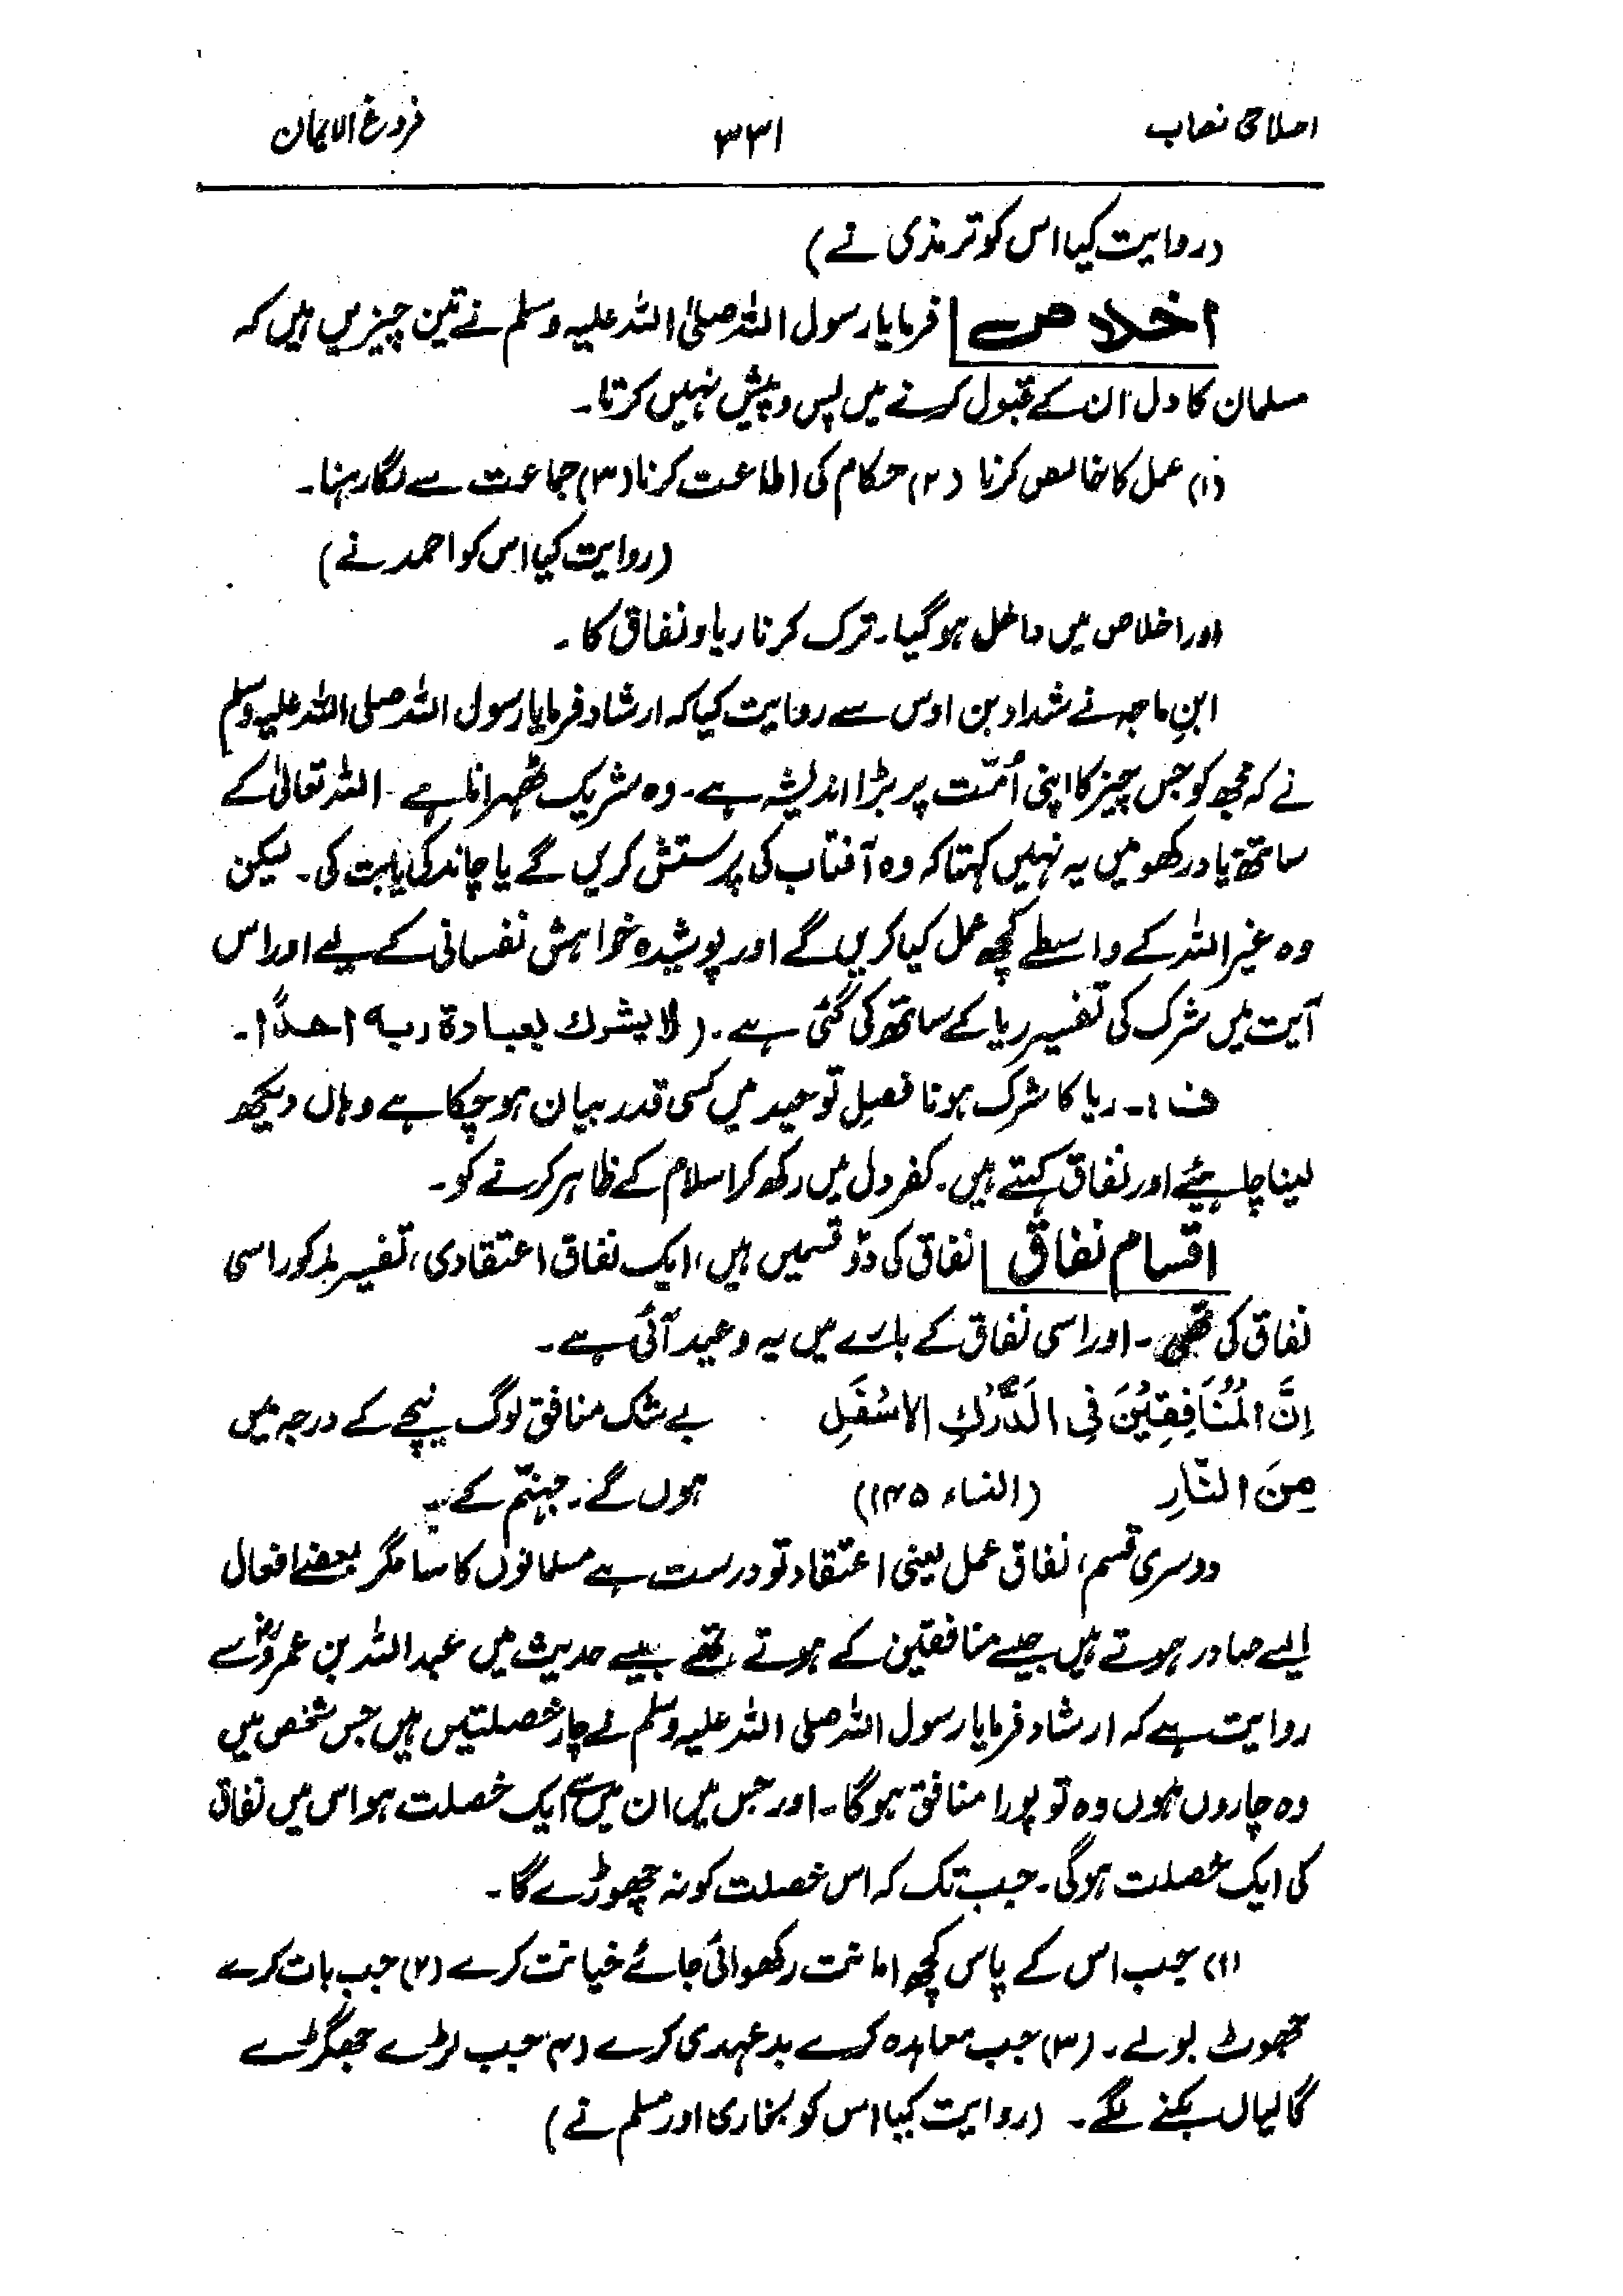 اصلاحی نصاب ۳۳۱ فروغ الایمان
(روایت کیا اس کو ترمذی نے)
اخلاص فرمایا رسول اللہ صلی اللہ علیہ وسلم نے تین چیزیں ہیں کہ
مسلمان کا دل ان کے قبول کرنے میں پس و پیش نہیں کرتا۔
(۱) عمل کا خالص کرنا (۲) حکام کی اطاعت کرنا (۳) جماعت سے لگا رہنا۔
(روایت کیا اس کو احمد نے)
اور اخلاص میں داخل ہو گیا۔ ترک کرنا ریا و نفاق کا۔
ابنِ ماجہ نے شداد بن اوس سے روایت کیا کہ ارشاد فرمایا رسول اللہ صلی اللہ علیہ وسلم
نے کہ مجھ کو جس چیز کا اپنی اُمّت پر بڑا اندیشہ ہے۔ وہ شریک ٹھہرانا ہے۔ اللہ تعالیٰ کے
ساتھ یاد رکھو میں یہ نہیں کہتا کہ وہ آفتاب کی پرستش کریں گے یا چاند کی یا بت کی۔ لیکن
وہ غیر اللہ کے واسطے کچھ عمل کیا کریں گے اور پوشیدہ خواہش نفسانی کے لیے اور اس
آیت میں شرک کی تفسیر ریا کے ساتھ کی گئی ہے۔ (لا یشرك بعبادة ربه احدًا۔
ف ۱۔ ریا کا شرک ہونا فصلِ توحید میں کسی قدر بیان ہو چکا ہے وہاں دیکھ
لینا چاہیئے اور نفاق کہتے ہیں۔ کفر دل میں رکھ کر اسلام کے ظاہر کرنے کو۔
اقسام نفاق نفاق کی دو قسمیں ہیں، ایک نفاق اعتقادی، تفسیر مذکور اسی
نفاق کی تھی۔ اور اسی نفاق کے بارے میں یہ وعید آئی ہے۔
اِنَّ الْمُنَافِقِیْنَ فِی الدَّرْكِ الْاَسْفَلِ بے شک منافق لوگ نیچے کے درجہ میں
مِنَ النَّارِ (النساء ۱۴۵) ہوں گے۔ جہنّم کے
دوسری قسم، نفاق عمل یعنی اعتقاد تو درست ہے مسلمانوں کا سا مگر بعضے افعال
ایسے صادر ہوتے ہیں جیسے منافقین کے ہوتے تھے جیسے حدیث میں عبد اللہ بن عمروؓ سے
روایت ہے کہ ارشاد فرمایا رسول اللہ صلی اللہ علیہ وسلم نے چار خصلتیں ہیں جس شخص میں
وہ چاروں ہوں وہ تو پورا منافق ہو گا۔ اور جس میں ان میں سے ایک خصلت ہو اس میں نفاق
کی ایک خصلت ہو گی۔ جب تک کہ اس خصلت کو نہ چھوڑے گا۔
(۱) جب اس کے پاس کچھ امانت رکھوائی جائے خیانت کرے (۲) جب بات کرے
جھوٹ بولے۔ (۳) جب معاہدہ کرے بد عہدی کرے (۴ جب لڑے جھگڑے
گالیاں بکنے لگے۔ (روایت کیا اس کو بخاری اور مسلم نے)